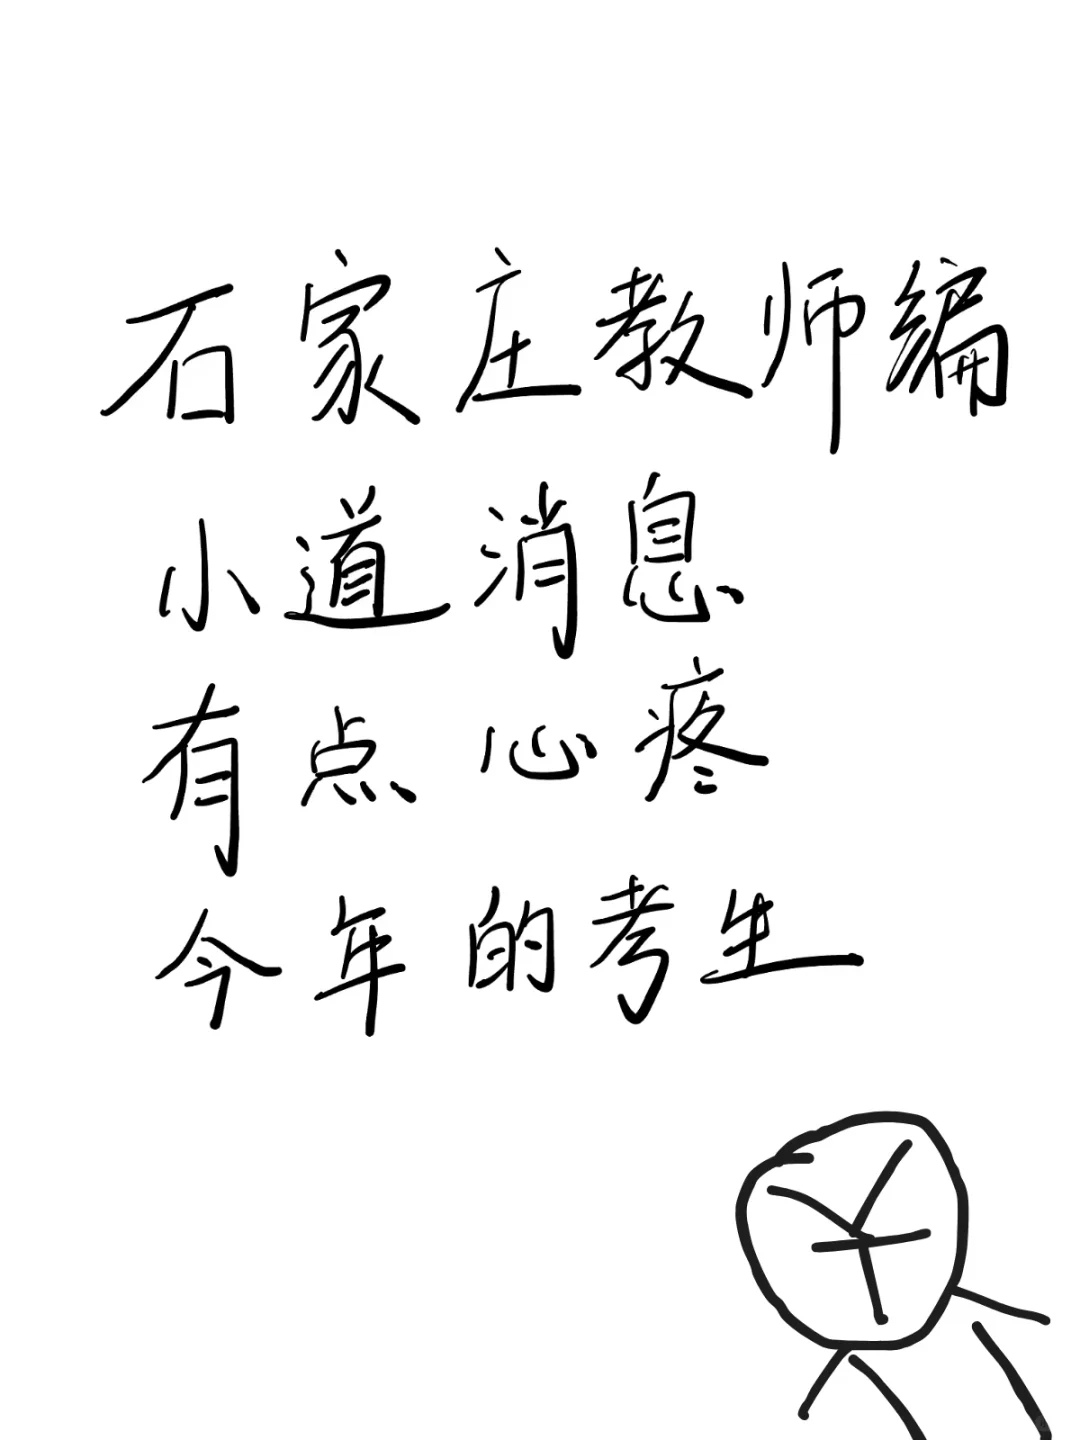 石家庄教师编
小道消息
有点心疼
今年的考生